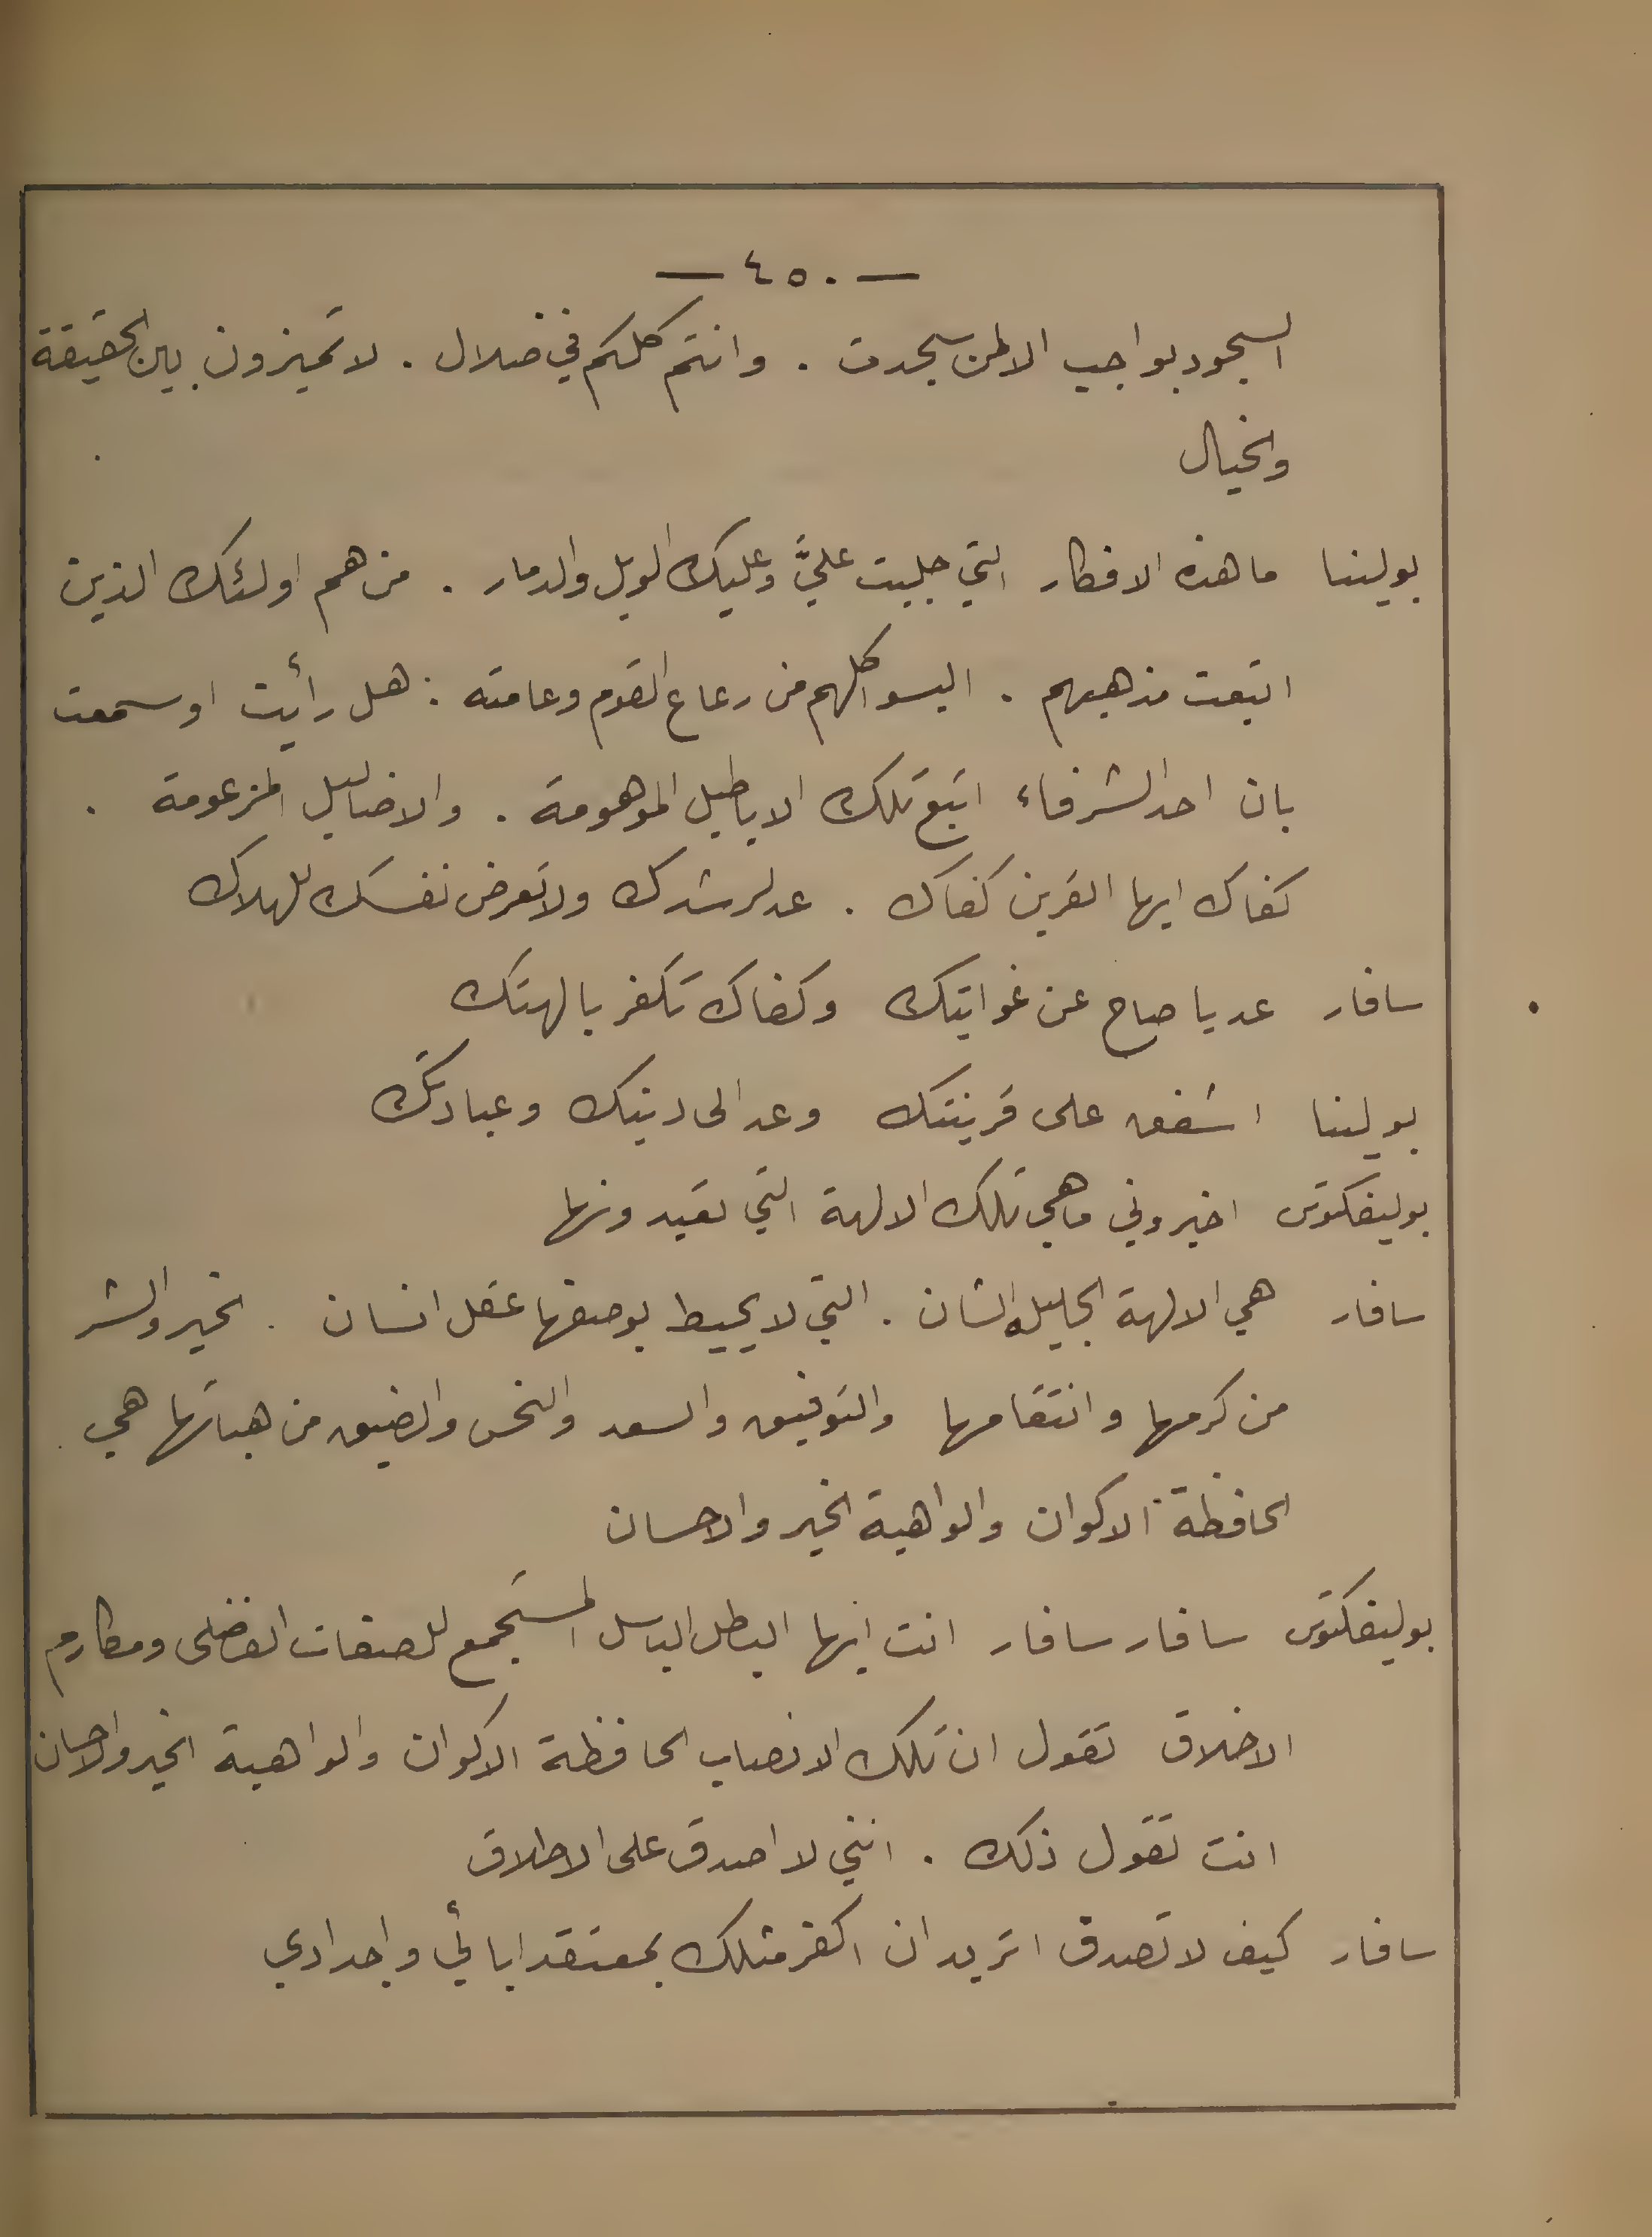 — ٤٥٠ —
السجود بواجب الا لمن سجدت . وانتم كلكم في ضلال . لا تميزون بين الحقيقة
والخيال
بولينا ما هذه الافكار التي جلبت عليَّ وعليك الويل والدمار . من هم اولئك الذين
اتبعت مذهبهم . اليسوا كلهم من رعاع القوم وعامته : هل رأيت او سمعت
بان احد الشرفاء اتبع تلك الاباطيل الموهومة . والاضاليل المزعومة .
كفاك ايها القرين كفاك . عد لرشدك ولا تعرض نفسك للهلاك
سافار عد يا صاح عن غوايتك وكفاك تكفر بالهتك
بولينا اشفق على قرينتك وعد الى دينك وعبادتك
بوليفكتوس اخبروني ما هي تلك الالهة التي تعبدونها
سافار هي الالهة الجليلة الشان . التي لا يحيط بوصفها عقل انسان . الخير والشر
من كرمها وانتقامها والتوفيق والسعد والنحس والضيق من هباتها هي
الحافظة الاكوان والواهبة الخير والاحسان
بوليفكتوس سافار سافار انت ايها البطل الباسل المستجمع للصفات الفضلى ومكارم
الاخلاق تقول ان تلك الانصاب الحافظة الاكوان والواهبة الخير والاحسان
انت تقول ذلك . انني لا اصدق على الاطلاق
سافار كيف لا تصدق اتريد ان اكفر مثلك بمعتقد ابائي واجدادي